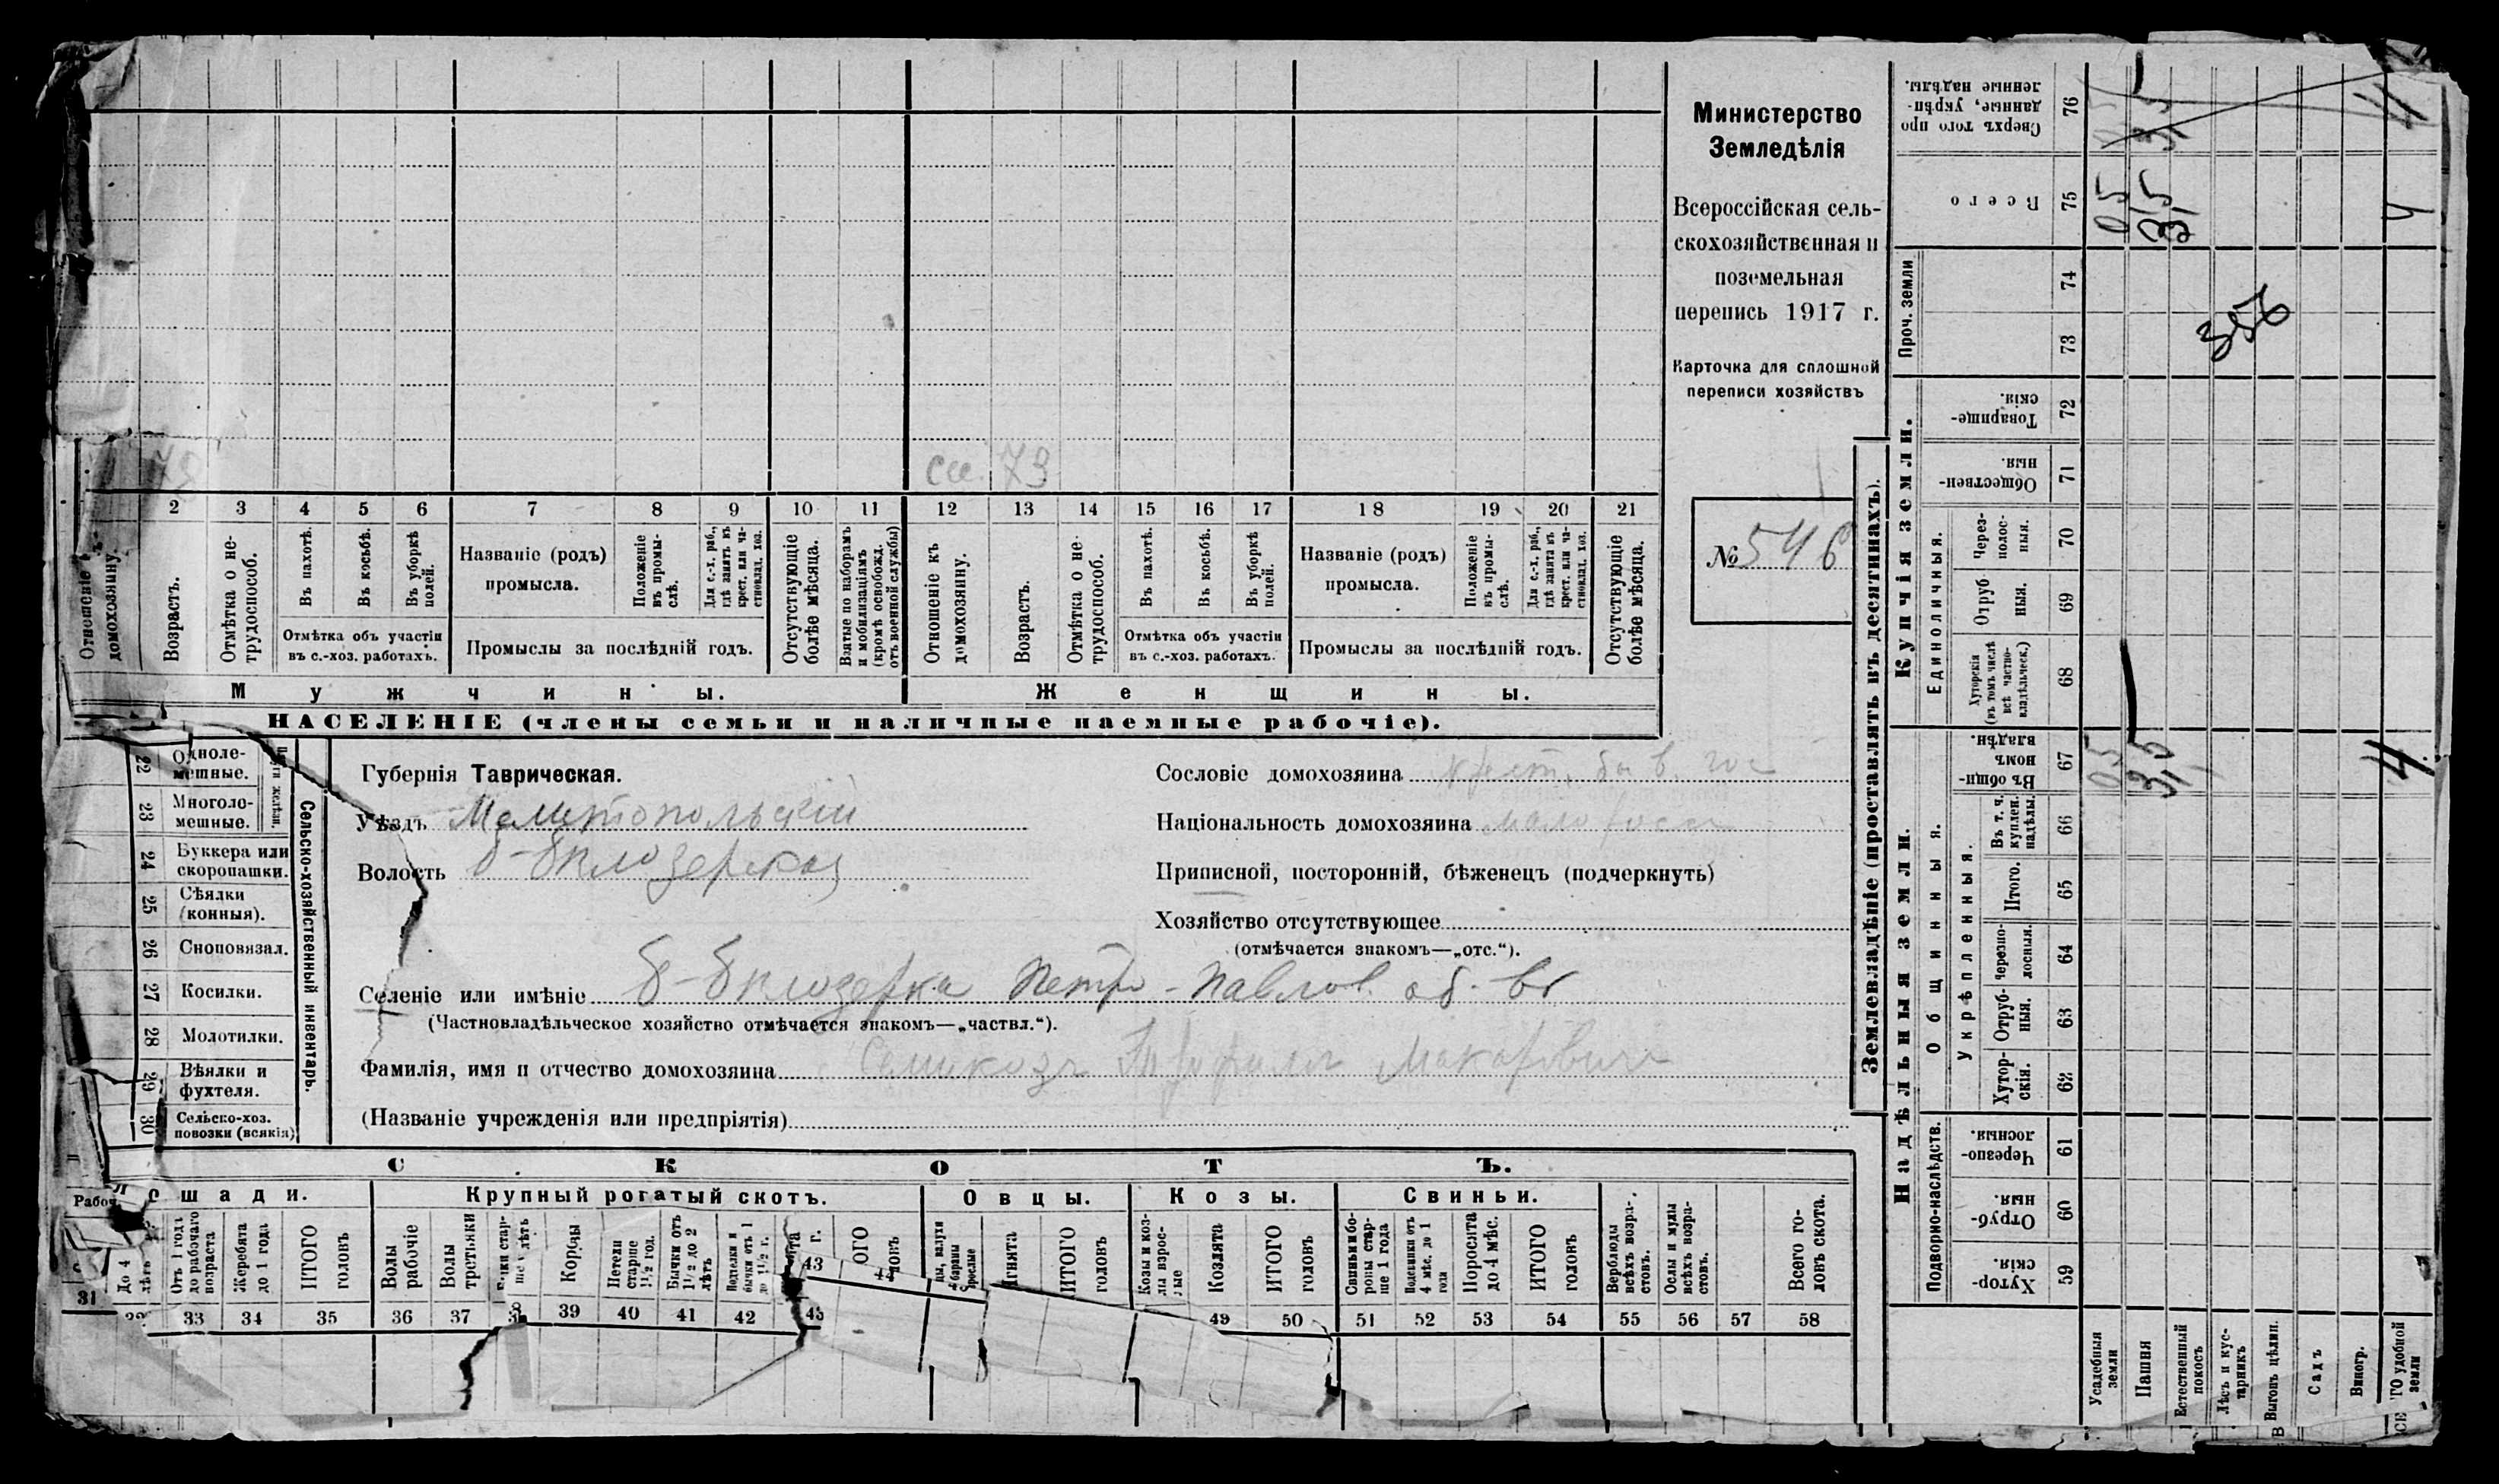 75 сес. 73
2 3 4 5 6 7 8 9 10 11 12 13 14 15 16 17 18 19 20 21
Отношеніе къ домохозяину.
Возрастъ.
Отмѣтка о не-
трудоспособ.
Въ пахотѣ.
Въ косьбѣ.
Въ уборкѣ
полей.
Отмѣтка объ участіи
въ с.-хоз. работахъ.
Названіе (родъ)
промысла.
Положеніе
въ промы-
слѣ.
Для с.-х. раб.,
гдѣ занятъ въ
крест. или ча-
стновлад. хоз.
Промыслы за послѣдній годъ.
Отсутствующіе
болѣе мѣсяца.
Взятые по наборамъ
и мобилизаціямъ
(кромѣ освобожд.
отъ военной службы)
Отношеніе къ
домохозяину.
Возрастъ.
Отмѣтка о не-
трудоспособ.
Въ пахотѣ.
Въ косьбѣ.
Въ уборкѣ
полей.
Отмѣтка объ участіи
въ с.-хоз. работахъ.
Названіе (родъ)
промысла.
Положеніе
въ промы-
слѣ.
Для с.-х. раб.,
гдѣ занята въ
крест. или ча-
стновлад. хоз.
Промыслы за послѣдній годъ.
Отсутствующіе
болѣе мѣсяца.
Мужчины.
Женщины.
НАСЕЛЕНІЕ (члены семьи и наличные наемные рабочіе).
Министерство
Земледѣлія
Всероссійская сель-
скохозяйственная и
поземельная
перепись 1917 г.
Карточка для сплошной
переписи хозяйствъ
№ 546
22 Однолемешные.
23 Многолемешные.
24 Буккера или
скоропашки.
25 Сѣялки
(конныя).
26 Сноповязал.
27 Косилки.
28 Молотилки.
29 Вѣялки и
фухтеля.
30 Сельско-хоз.
повозки (всякія)
Сельско-хозяйственный инвентарь.
Губернія Таврическая.
Уѣздъ Мелитопольскій
Волость б-бѣлозерская
Сословіе домохозяина крест. быв. гос
Національность домохозяина малоросс
Приписной, посторонній, бѣженецъ (подчеркнуть)
Хозяйство отсутствующее
(отмѣчается знакомъ—„отс.“).
Селеніе или имѣніе б-бѣлозерка Петро-Павлов. об-во
(Частновладѣльческое хозяйство отмѣчается знакомъ—„частвл.“).
Фамилія, имя и отчество домохозяина Семикозъ Макаровичъ
(Названіе учрежденія или предпріятія)
СКОТЪ.
Лошади.
Крупный рогатый скотъ.
Овцы.
Козы.
Свиньи.
До 4
лѣтъ
Отъ 1 года
до рабочаго
возраста
Жеребята
до 1 года
ИТОГО
головъ
Волы
рабочіе
Волы
третьяки
Коровы
Нетели
старше
1½ год.
Бычки отъ
1½ до 2
лѣтъ
Подтелки и
бычки отъ 1
до 1½ г.
ИТОГО
головъ
Козы и коз-
лы взрос-
лые
Козлята
ИТОГО
головъ
Свиньи и бо-
ровы стар-
ше 1 года
Подсвинки отъ
4 мѣс. до 1
года
Поросята
до 4 мѣс.
ИТОГО
головъ
Верблюды
всѣхъ возра-
стовъ.
Ослы и мулы
всѣхъ возра-
стовъ.
Всего го-
ловъ скота.
31 33 34 35 36 37 39 40 41 42 43 44 49 50 51 52 53 54 55 56 57 58
Землевладѣніе (проставлять въ десятинахъ).
Надѣльныя земли.
Купчія земли.
Проч. земли
Подворно-наслѣдств.
Общинныя.
Укрѣпленныя.
Единоличныя.
76 Сверхъ того про
данные, укрѣп-
ленные надѣлы. 0,5 3,5 4
75 Всего 0,5 3,5 4
74
73 356
72 Товарище-
скія.
71 Обществен-
ныя.
70 Через-
полос-
ныя.
69 Отруб-
ныя.
68 Хуторскія
(въ томъ числѣ
всѣ частно-
владѣльческ.)
67 Въ общин-
номъ
владѣн. 0,5 3,5 4
66 Въ т. ч.
куплен.
надѣлы.
65 Итого.
64 Черезпо-
лосныя.
63 Отруб-
ныя.
62 Хутор-
скія.
61 Черезпо-
лосныя.
60 Отруб-
ныя.
59 Хутор-
скія.
Усадебныя
земли
Пашня
Естественный
покосъ
Лѣсъ и кус-
тарникъ
Выгонъ цѣлин.
Садъ
Виногр.
ВСЕГО удобной
земли